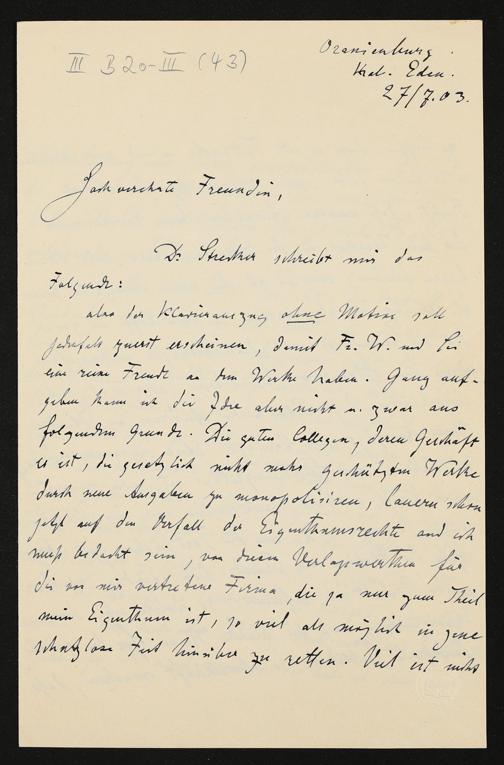 III B20-III (43)
Oranienburg.
Kol. Eden.
27/7.03.
Hochverehrte Freundin,
Dr Strecker schreibt mir das
Folgende:
also der Klavierauszug ohne Motive soll
jedenfalls zuerst erscheinen, damit Fr. W. und Sie
eine reine Freude an dem Werke haben. Ganz auf-
geben kann ich die Idee aber nicht u. zwar aus
folgendem Grunde. Die guten Collegen, deren Geschäft
es ist, die gesetzlich nicht mehr geschützten Werke
durch neue Ausgaben zu monopolisiren, lauern schon
jetzt auf den Verfall der Eigenthumsrechte und ich
muß bedacht sein, von diesen Verlagswerthen für
die von mir vertretene Firma, die ja nur zum Theil
mein Eigenthum ist, so viel als möglich in jene
schutzlose Zeit hinüber zu retten. Viel ist nicht